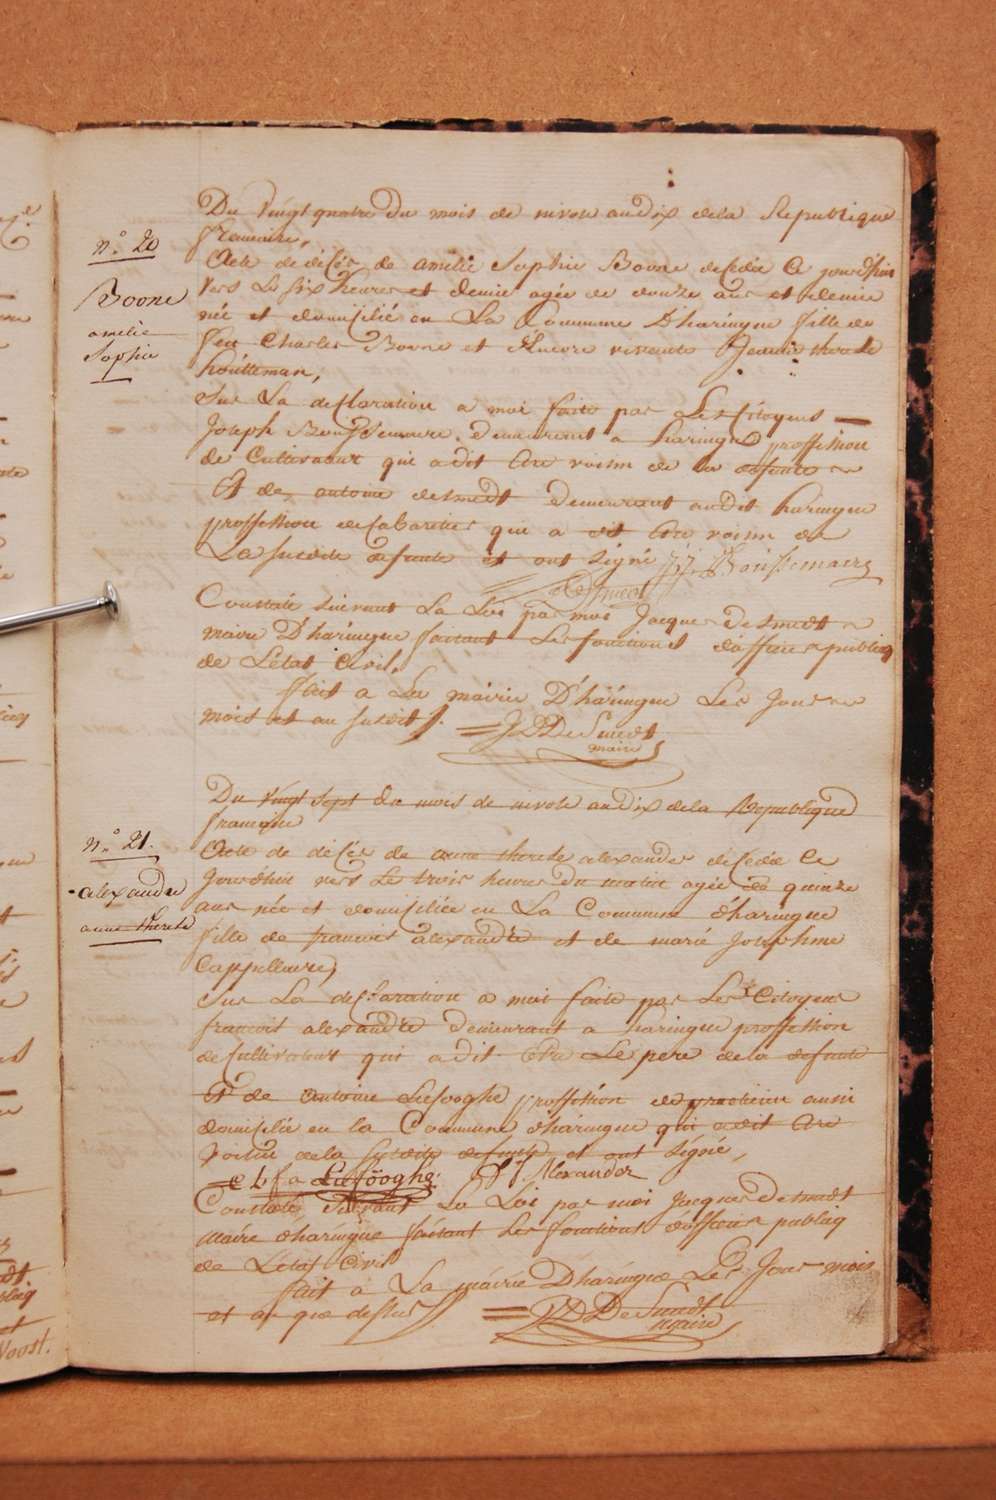 Du vingt quatre du mois de nivose an dix de la Republique
francaise,
n.° 20
Boone
amelie
Sophie
Acte de décés de amelie Sophie Boone decedée ce jourdhui
vers les six heures et demie agée de douze ans et demie
née et domicilié en La Commune D'haringue fille de
feu Charles Boone et Encore vivente Jeanne therese
houtteman,
Sur La declaration a moi faite par Les Citoyens
Joseph demeurent a haringue proffession
de Cultivateur qui a dit être voisin de la defunte
Et de antoine desmedt demeurant audit haringue
proffession de Cabaretier qui a dit être voisin de
La susdite defunte et ont signé
Desmedt
Constaté suivant La Loi par moi Jacques Desmedt
maire D'haringue faisant Les fonctions d'officier publiq
de L'état Civil,
fait a La mairie D'haringue Les Jour
mois et an susdit J D DeSmedt
maire
Du vingt sept du mois de nivose an dix de la Republique
francaise
n.° 21.
alexandre
anne therese
Acte de décés de anne therese alexander decedée ce
jourdhui vers Le trois heures du matin agée de quinze
ans née et domiciliée en La Commune d'haringue
fille de francois alexandre et de marie Josephine
Cappellaere,
Sur La declaration a moi faite par Les Citoyens
francois alexandre demeurant a haringue proffession
de Cultivateur qui a dit être Le pere de la defunte
Et de Antoine Liefooghe proffession de praticien aussi
domicilié en la Commune d'haringue qui a dit être
Voisin de la susdite defunte et ont signé,
Liefooghe F J Alexander
Constaté suivant La Loi par moi Jacques Desmedt
Maire d'haringue faisant Les fonctions d'officier publiq
de L'état Civil
fait a La mairie D'haringue Les Jour mois
et an que dessus J D DeSmedt
maire